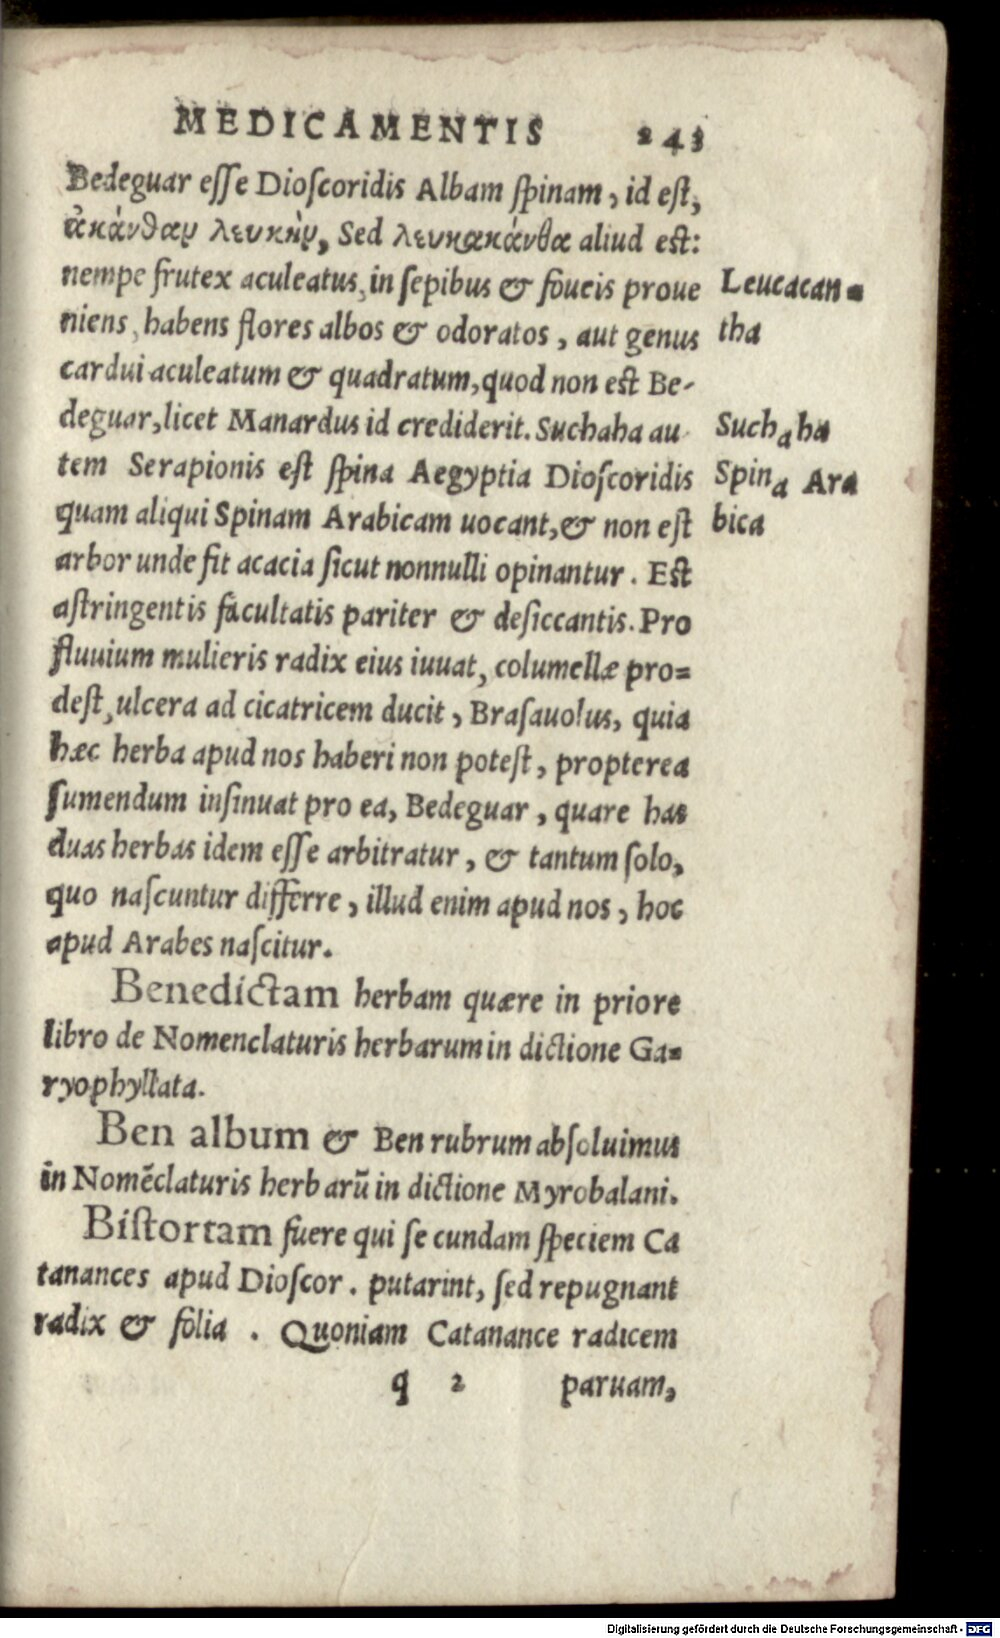 MEDICAMENTIS 243
Bedeguar eſſe Dioſcoridis Albam ſpinam, id eſt,
ἄκάνθαν λευκὴν, Sed λευκακάνθα aliud eſt:
nempe frutex aculeatus, in ſepibus & foueis proue
niens, habens flores albos & odoratos, aut genus
cardui aculeatum & quadratum, quod non eſt Be-
deguar, licet Manardus id crediderit. Suchaha au
tem Serapionis eſt ſpina Aegyptia Dioſcoridis
quam aliqui Spinam Arabicam uocant, & non eſt
arbor unde fit acacia ſicut nonnulli opinantur. Eſt
aſtringentis facultatis pariter & deſiccantis. Pro
fluuium mulieris radix eius iuuat, columellæ pro=
deſt, ulcera ad cicatricem ducit, Braſauolus, quia
hæc herba apud nos haberi non poteſt, propterea
ſumendum inſinuat pro ea, Bedeguar, quare has
duas herbas idem eſſe arbitratur, & tantum ſolo,
quo naſcuntur differre, illud enim apud nos, hoc
apud Arabes naſcitur.
Benedictam herbam quære in priore
libro de Nomenclaturis herbarum in dictione Ga=
ryophyllata.
Ben album & Ben rubrum abſoluimus
in Nomēclaturis herbarū in dictione Myrobalani.
Biſtortam fuere qui ſe cundam ſpeciem Ca
tanances apud Dioſcor. putarint, ſed repugnant
radix & folia. Quoniam Catanance radicem
q 2 paruam,
Leucacan=
tha
Suchaha
Spina Ara
bica
Digitalisierung gefördert durch die Deutsche Forschungsgemeinschaft - DFG